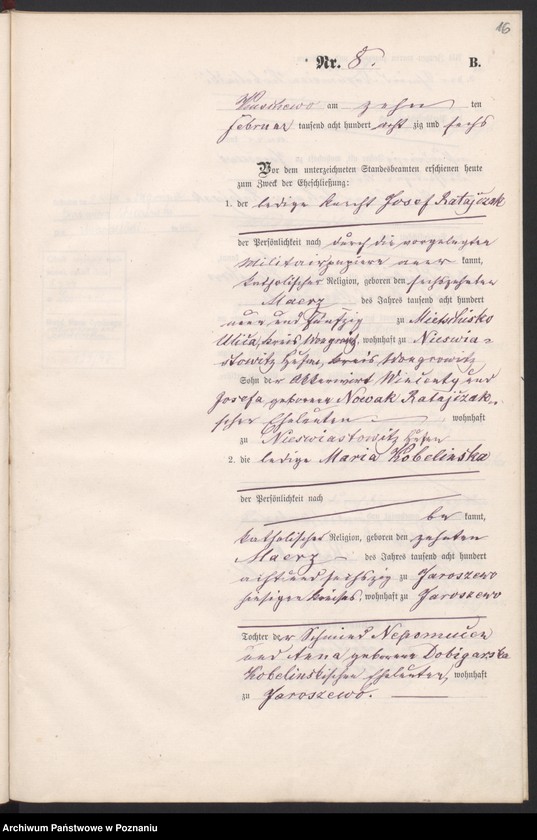 16
Nr. 8. B.
am zehn ten
Februar tausend acht hundert acht zig und sechs
Vor dem unterzeichneten Standesbeamten erschienen heute
zum Zweck der Eheschließung:
1. der ledige Knecht Josef Ratajczak
der Persönlichkeit nach durch die vorgelegten
Militairpapiere aner kannt,
katholischer Religion, geboren den sechszehnten
Maerz des Jahres tausend acht hundert
neun und fünfzig zu Mietschisko
Kreis Wongrowitz, wohnhaft zu Nieswia-
stowitz Kreis Wongrowitz
Sohn der Ackerwirt Wincenty und
Josefa geborene Nowak Ratajczak-
schen Eheleuten wohnhaft
zu Nieswiastowitz
2. die ledige Maria Kobelinska
der Persönlichkeit nach
be kannt,
katholischer Religion, geboren den zehnten
Maerz des Jahres tausend acht hundert
acht und sechszig zu Jaroszewo
hiesigen Kreises, wohnhaft zu Jaroszewo
Tochter der Schmied Nepomucen
und Anna geborene Dobigarska
Kobelinskischen Eheleuten, wohnhaft
zu Jaroszewo.
Archiwum Państwowe w Poznaniu